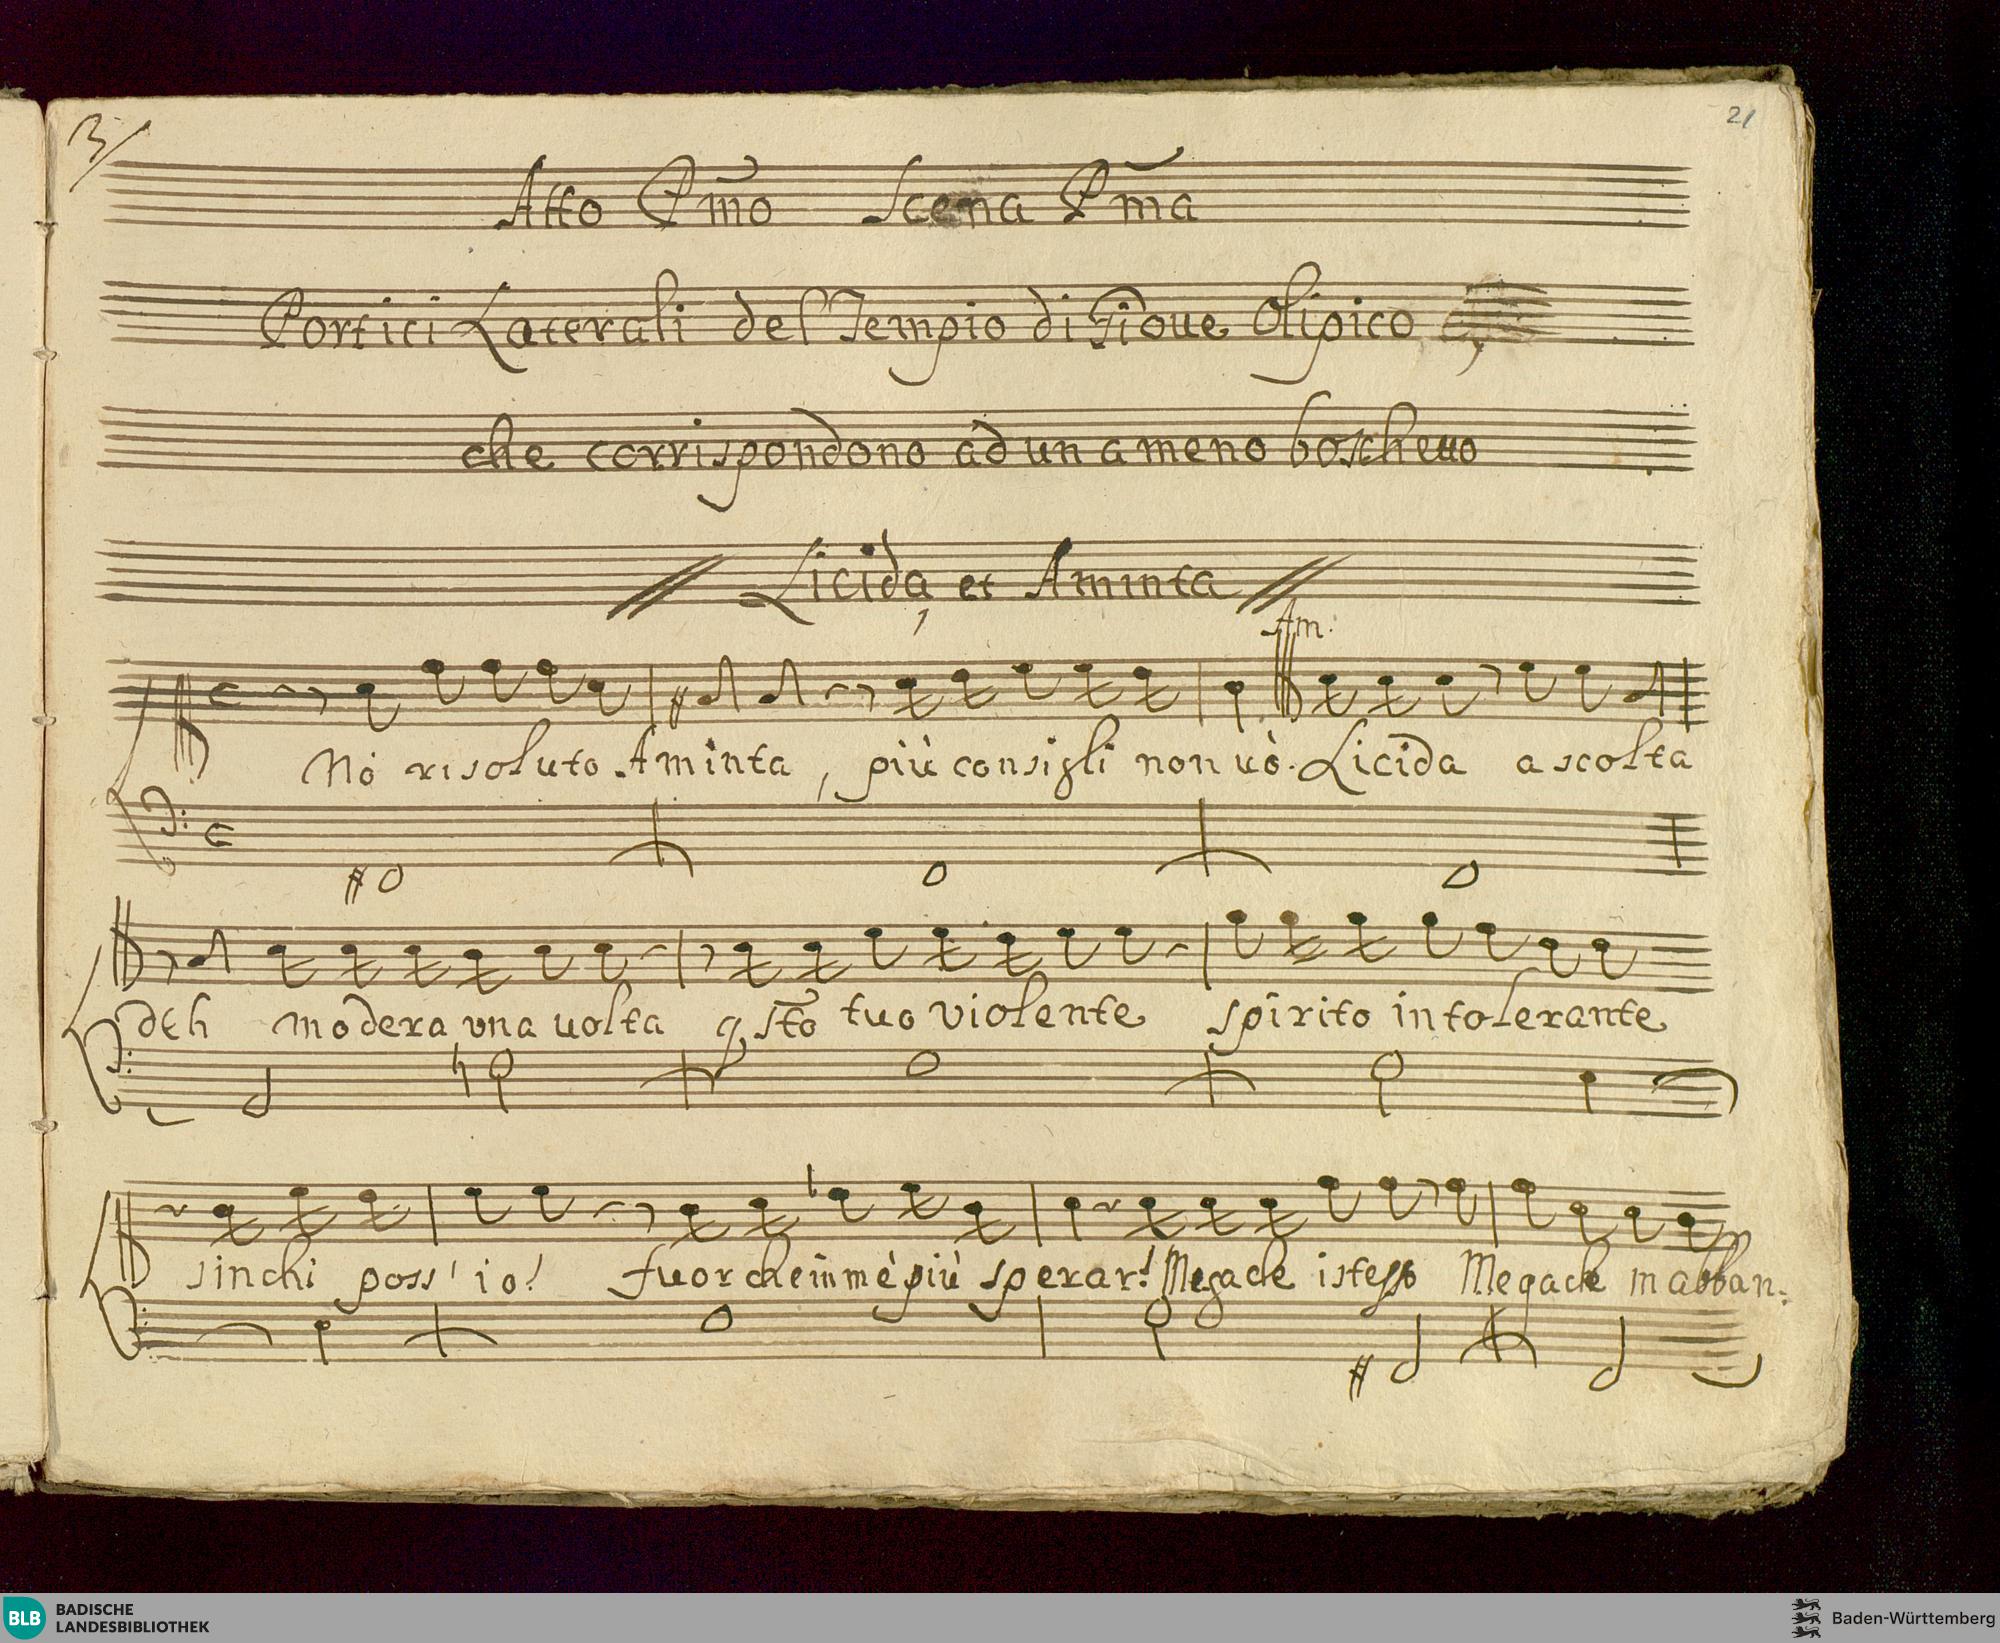 3/
21
Atto Pmo Scena Pma
Portici Laterali del Tempio di Gioue Olipico
che corrispondono ad un ameno boschetto
Licida, et Aminta
Am:
Nò risoluto Aminta, più consigli non uò. Licida ascolta
deh modera una uolta qsto tuo violente spirito intolerante
sinchi poss' io! fuor che in mè più sperar! Megacle istesso Megacle mabban:
BLB BADISCHE
LANDESBIBLIOTHEK
Baden-Württemberg